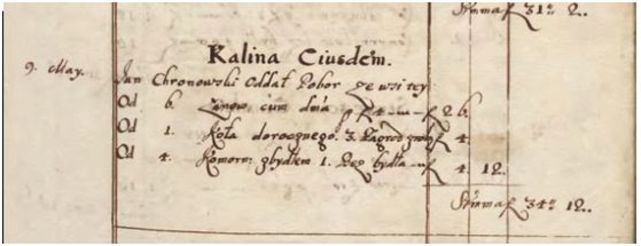 Summa f 31 . 12 ..
Kalina Eiusdem.
9. May.
Jan Chronowski Oddał Pobor ze wsi tey
Od 6. Łanow cum dnia f 26.
Od 1. Koła dorocznego. 3. Zagrod f 4.
Od 4. Komorn: zbydłem 1. Bez bydła f 4. 12.
Summa f 34 . 12 ..